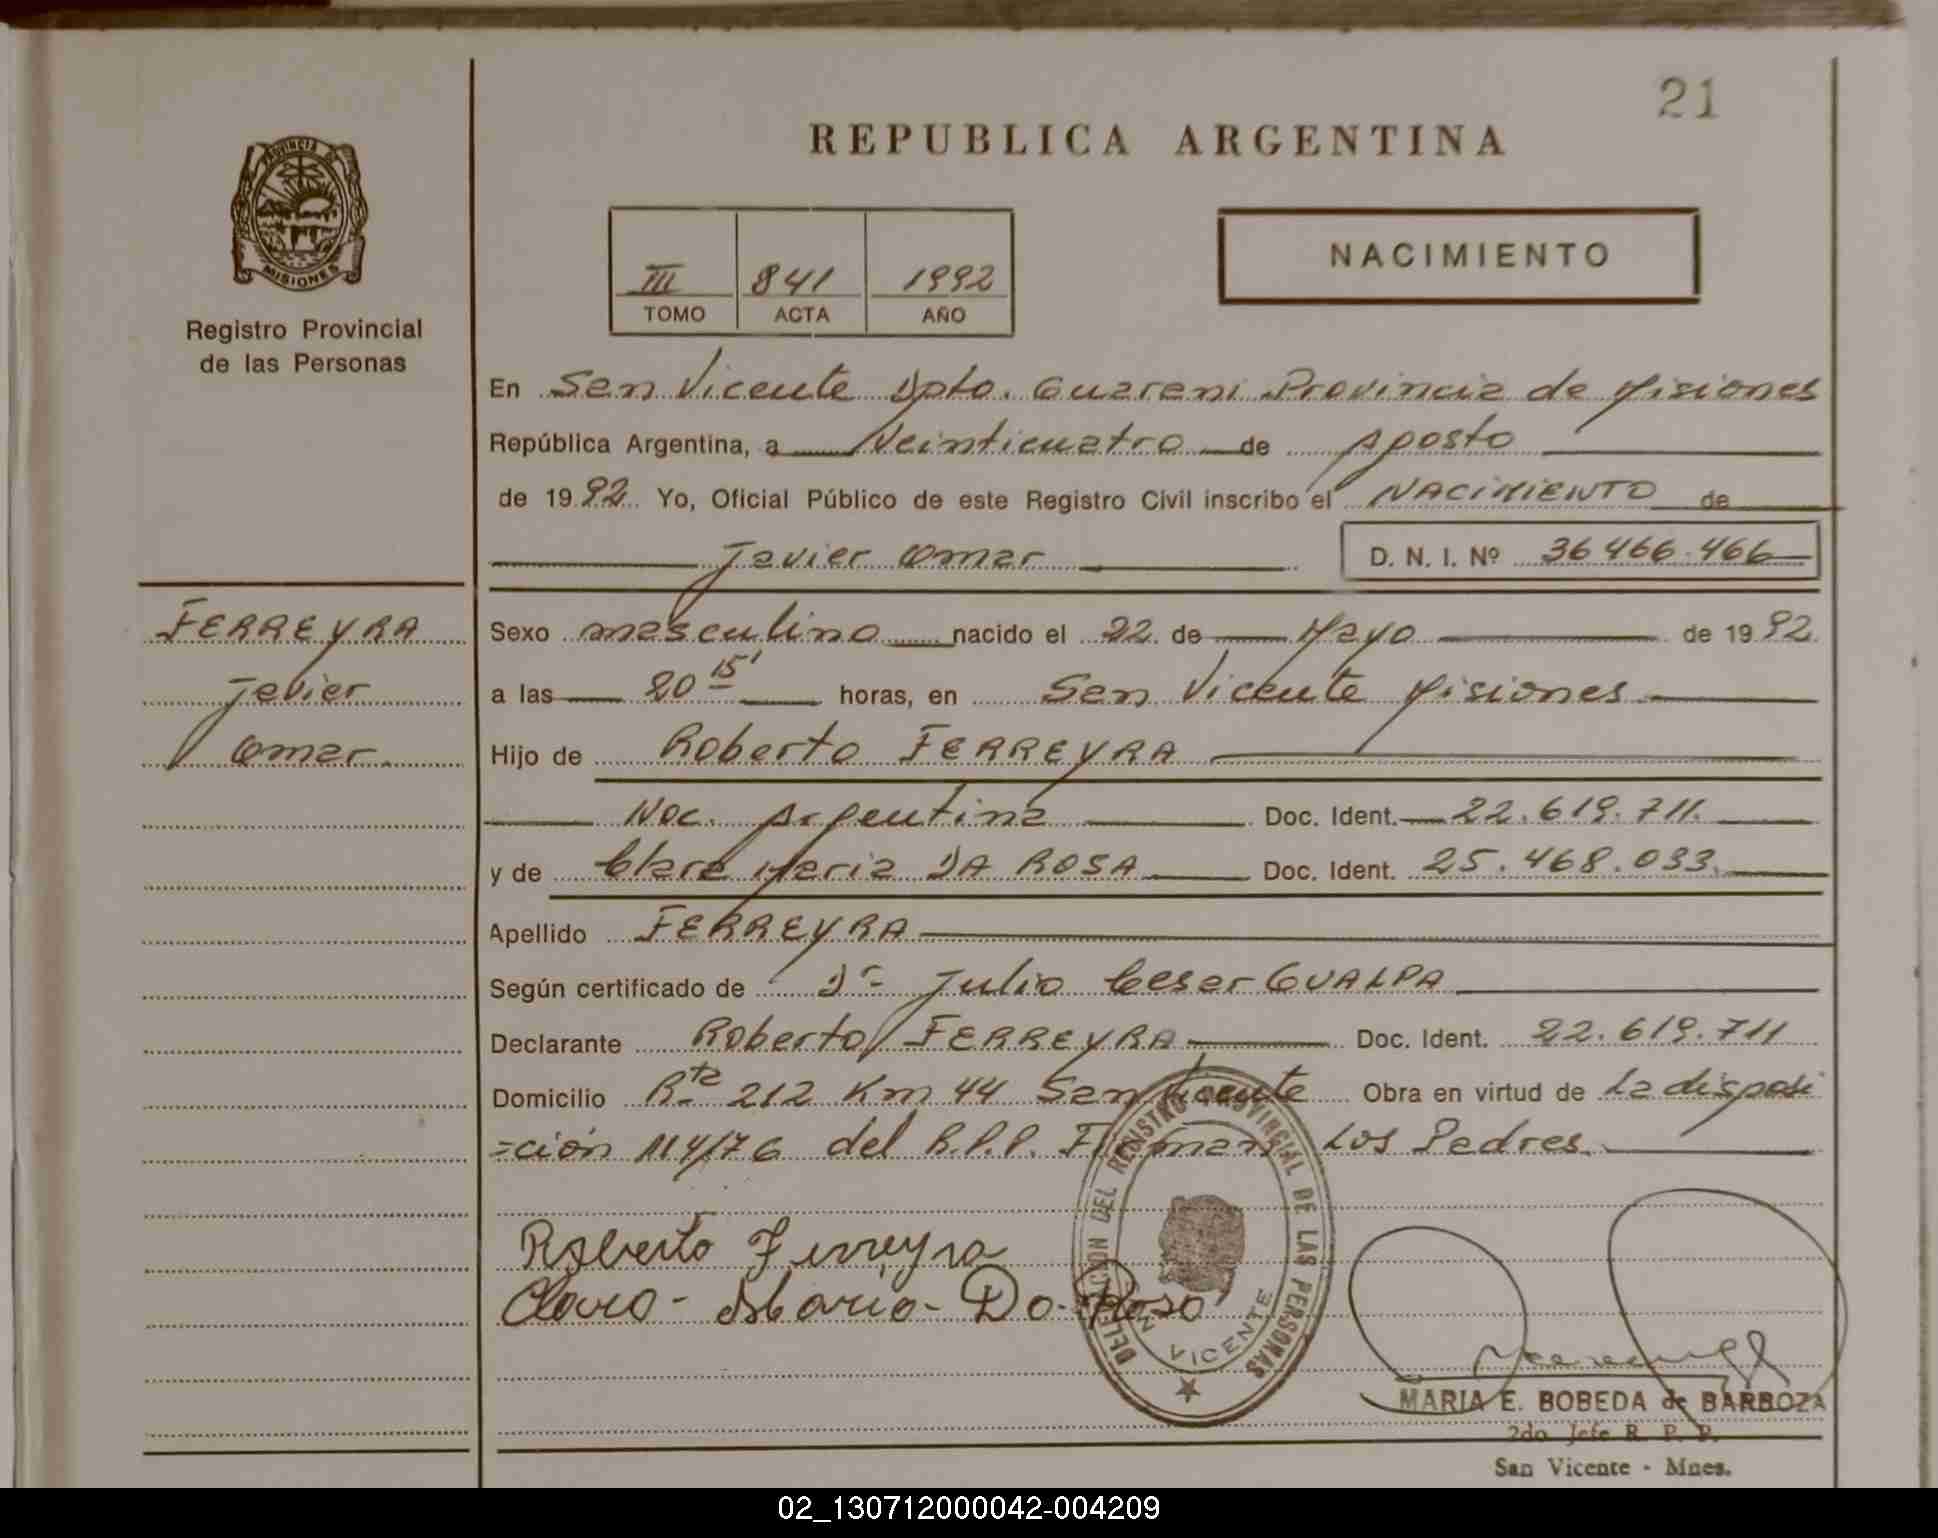 21
REPUBLICA ARGENTINA
PROVINCIA DE MISIONES
Registro Provincial
de las Personas
III 841 1992
TOMO ACTA AÑO
NACIMIENTO
En San Vicente Dpto. Guarani Provincia de Misiones
República Argentina, a Veinticuatro de Agosto
de 1992 Yo, Oficial Público de este Registro Civil inscribo el NACIMIENTO de
Javier Omar D. N. I. Nº 36466.466
FERREYRA
Javier
Omar
Sexo masculino nacido el 22 de Mayo de 1992
a las 20 15' horas, en San Vicente Misiones
Hijo de Roberto FERREYRA
Nac. Argentina Doc. Ident. 22.619.711.
y de Clara Maria DA ROSA Doc. Ident. 25.468.033.
Apellido FERREYRA
Según certificado de Dr Julio Cesar GUALPA
Declarante Roberto FERREYRA Doc. Ident. 22.619.711
Domicilio Rta 212 Km 44 San Vicente Obra en virtud de La disposi
=ción 114/76 del R.P.P. Firman Los Padres.
Roberto Ferreyra
Clara - Maria - Da - Rosa
DELEGACION DEL REGISTRO PROVINCIAL DE LAS PERSONAS
SAN VICENTE
MARIA E. BOBEDA de BARBOZA
2do Jefe R. P. P.
San Vicente - Mnes.
02_130712000042-004209